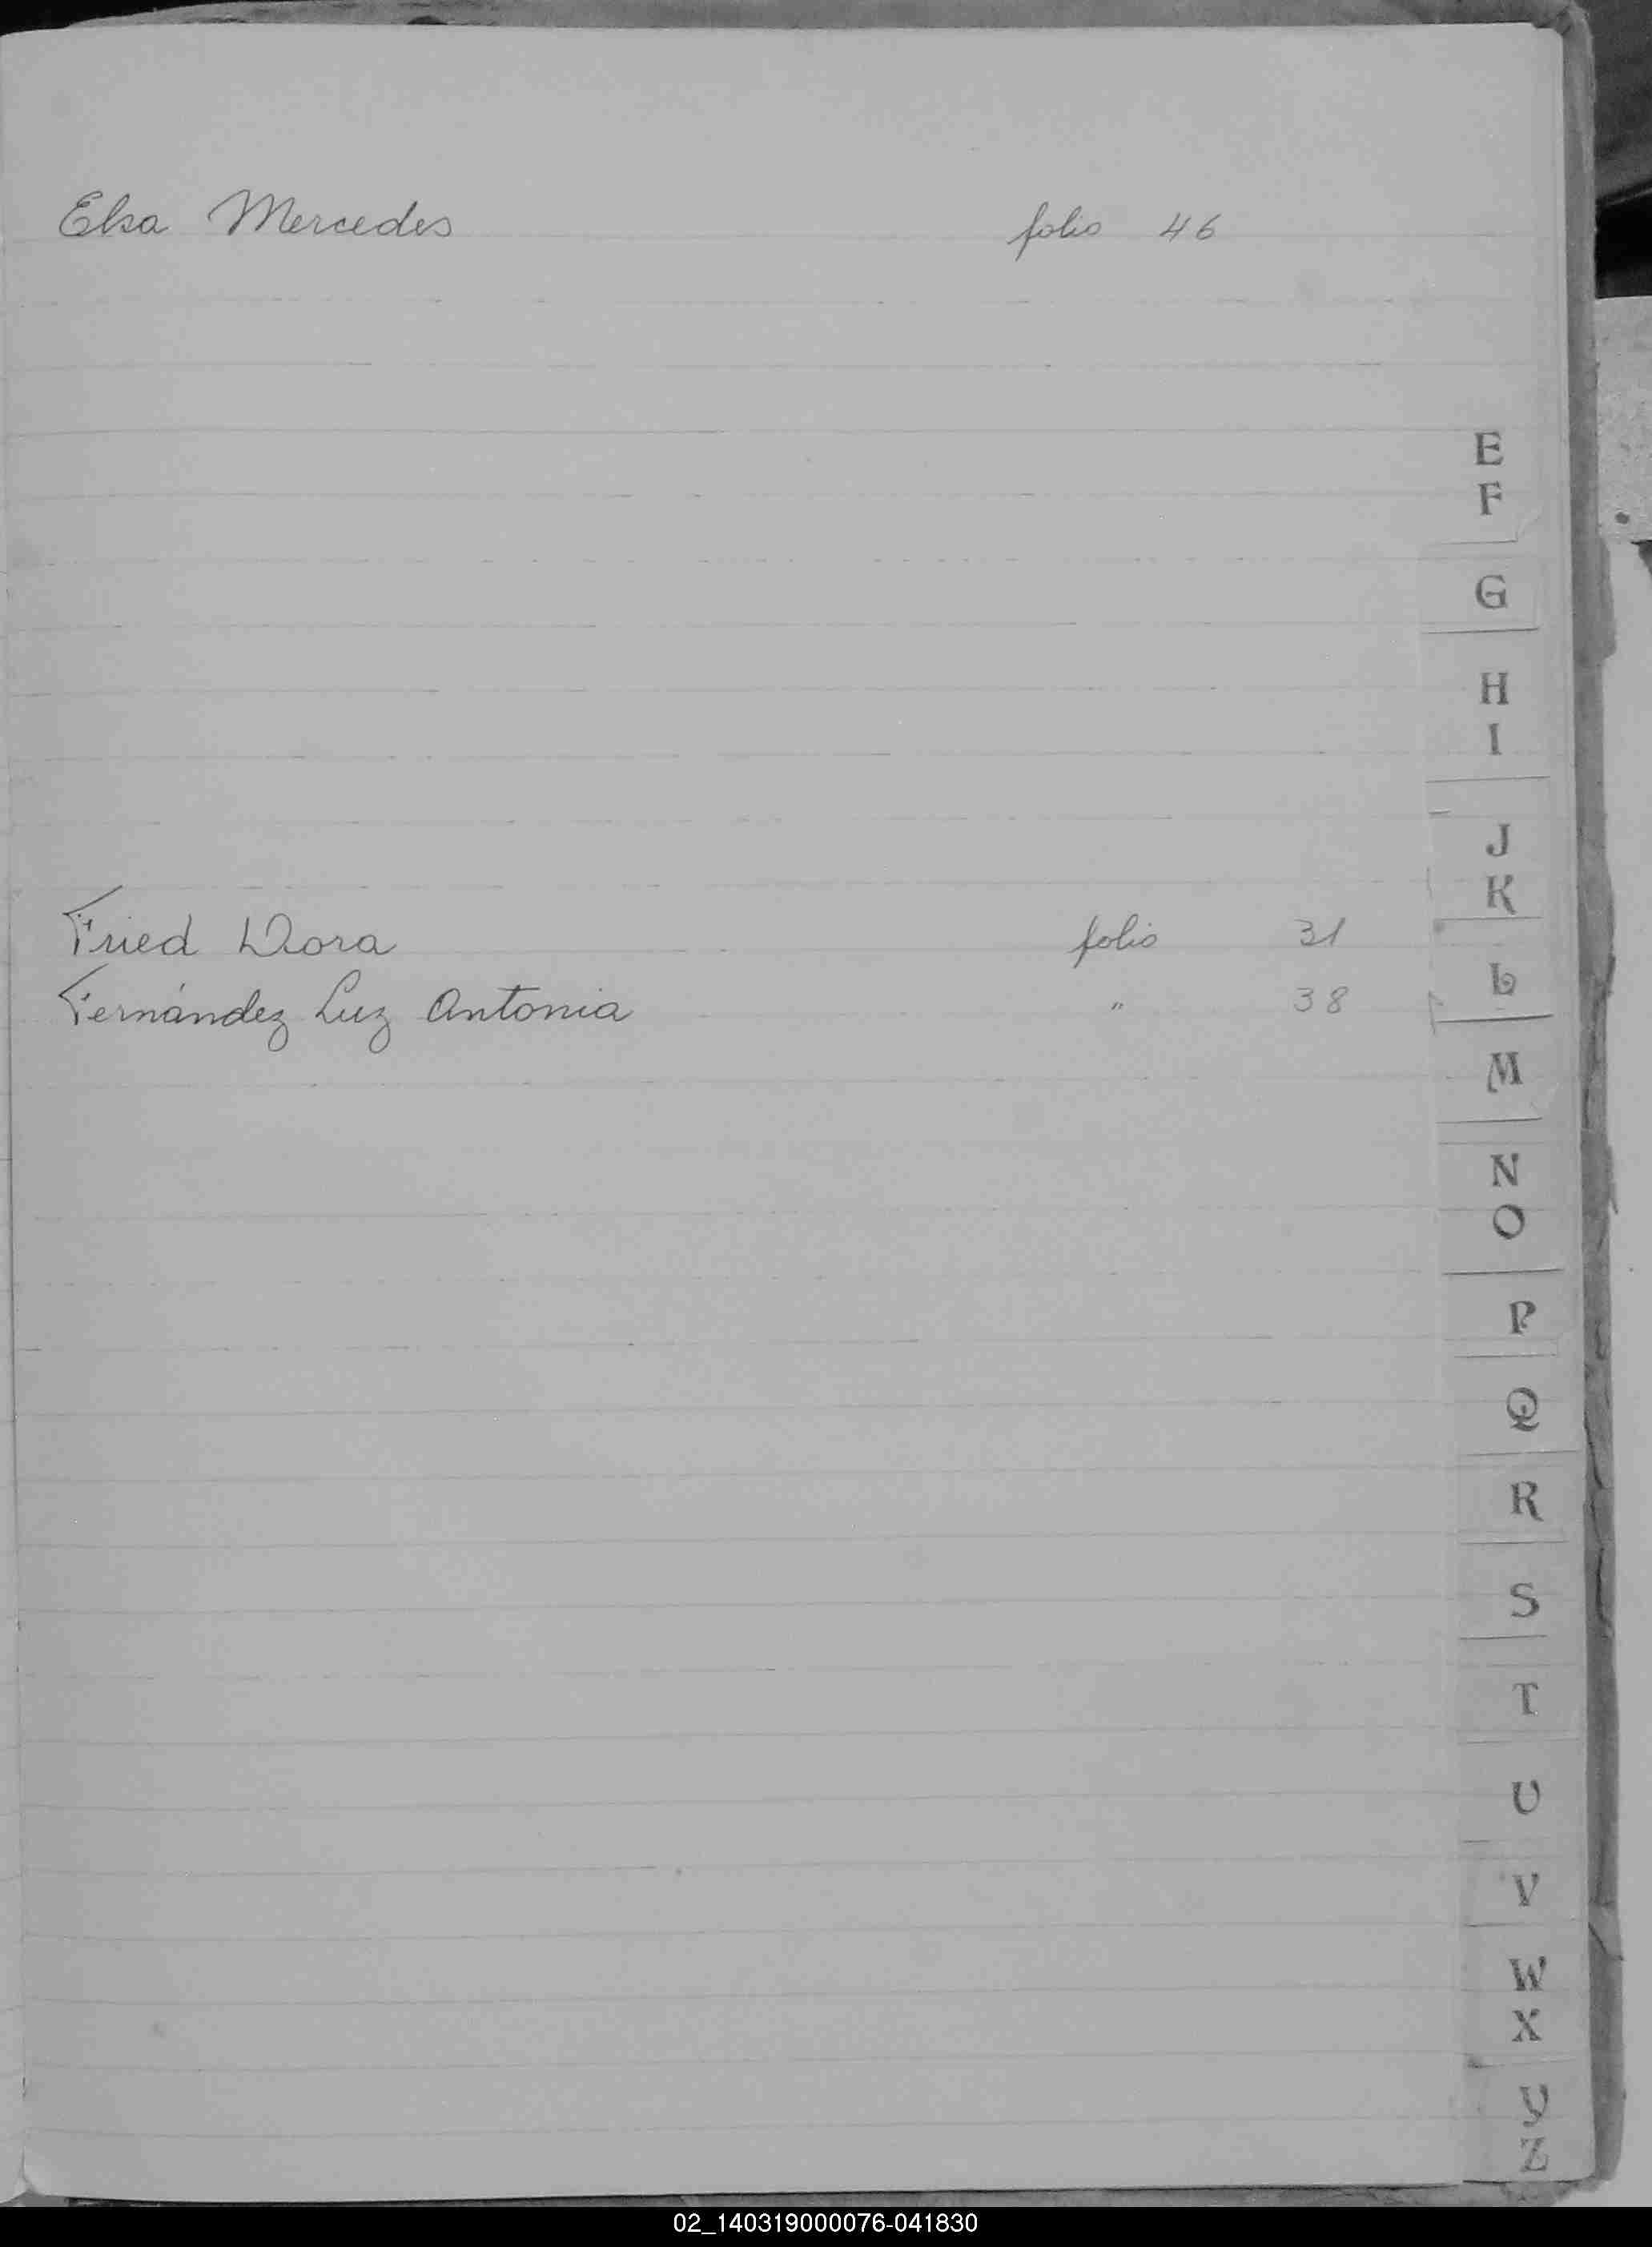 Elsa Mercedes folio 46
E
F
G
H
I
J
K
Fried Dora folio 31
L
Fernández Luz Antonia " 38
M
N
O
P
Q
R
S
T
U
V
W
X
Y
Z
02_140319000076-041830